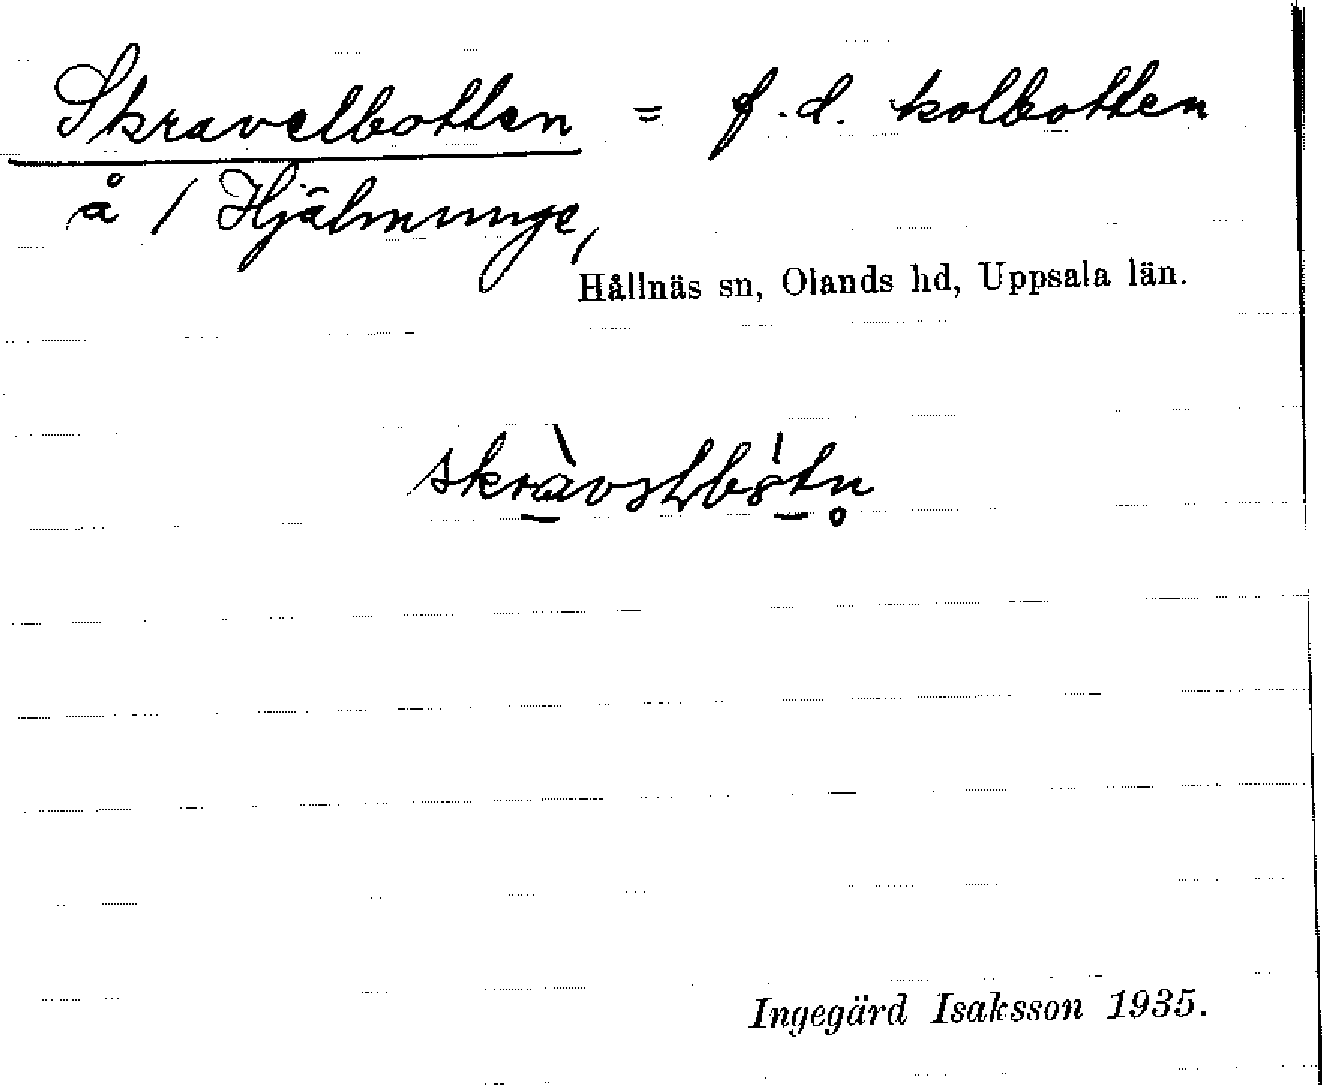 Skravelbotten = f.d. kolbotten
å / Hjälmunge,
Hållnäs sn, Olands hd, Uppsala län.
Ingegärd Isaksson 1935.